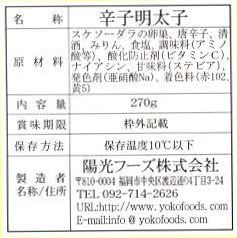 名称 辛子明太子
原材料 スケソーダラの卵巣、唐辛子、清
酒、みりん、食塩、調味料(アミノ
酸等)、酸化防止剤(ビタミンC)、
ナイアシン、甘味料(ステビア)、
発色剤(亜硝酸Na)、着色料(赤102、
黄5)
内容量 270g
賞味期限 枠外記載
保存方法 保存温度10℃以下
製造者名称/住所 陽光フーズ株式会社
〒810-0004 福岡市中央区渡辺通04丁目3-24
TEL 092-714-2626
URL:http://www.yokofoods.com
E-mail:info @ yokofoods.com